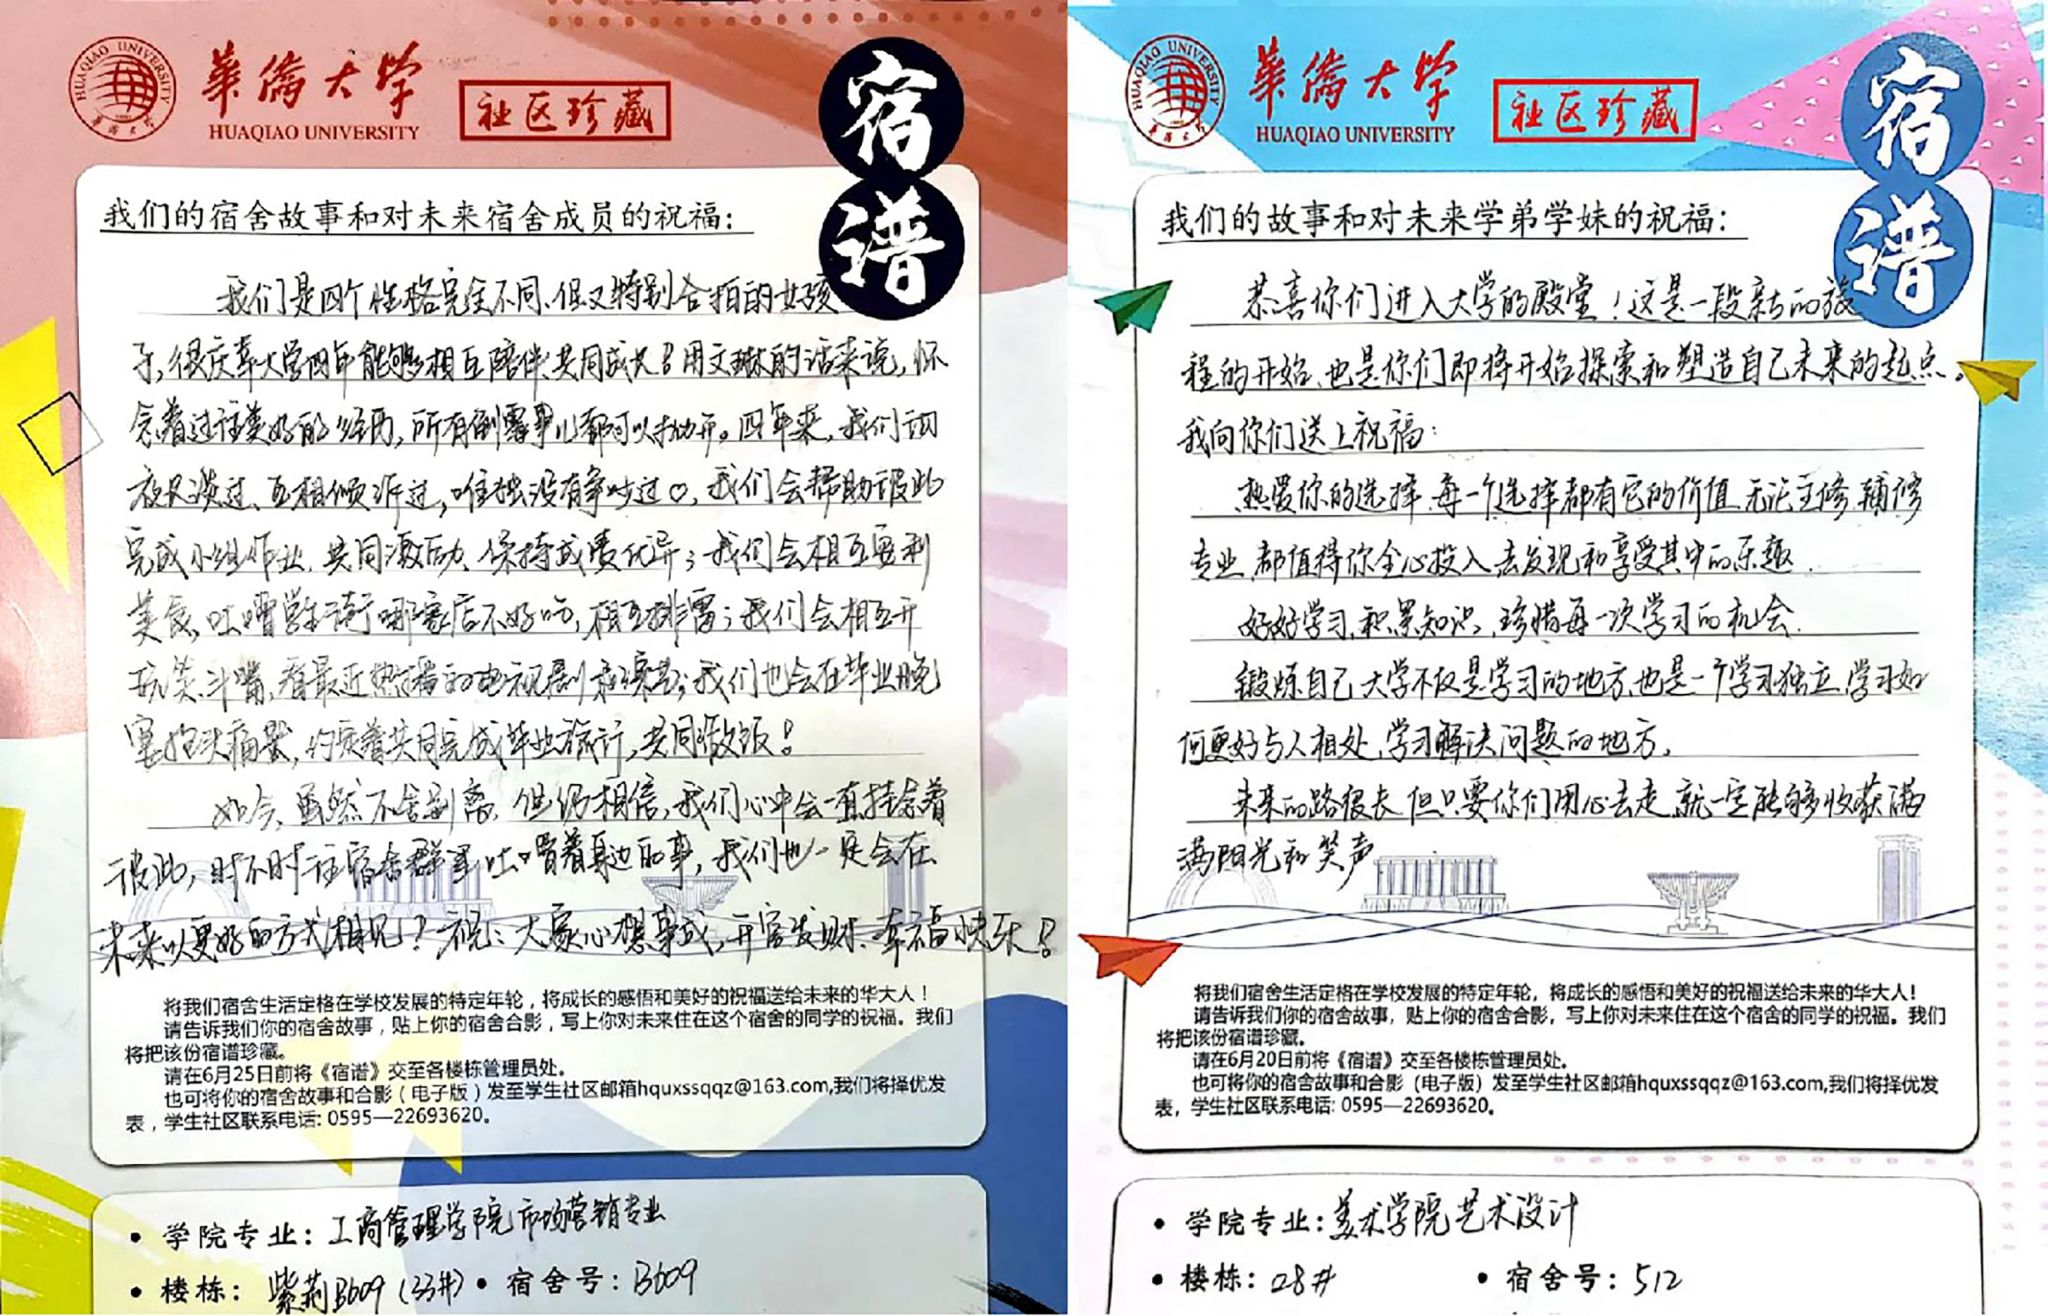 HUAQIAO UNIVERSITY
華僑大學
華僑大学
HUAQIAO UNIVERSITY
社区珍藏
宿谱
我们的宿舍故事和对未来宿舍成员的祝福:
我们是四个性格完全不同、但又特别合拍的女孩
子,很庆幸大学四年能够相互陪伴、共同成长!用文琳的话来说,怀
念着过往美好的经历,所有倒霉事儿都可以抛开。四年来,我们彻
夜长谈过、互相倾诉过,唯独没有争吵过♡,我们会帮助彼此
完成小组作业、共同激励、保持成绩优异;我们会相互安利
美食,吐嘈学生街哪家店不好吃,相互排雷;我们会相互开
玩笑、斗嘴,看最近热播的电视剧和综艺;我们也会在毕业晚
宴抱头痛哭,约定着共同完成毕业旅行,共同做饭!
如今,虽然不舍别离,但仍相信,我们心中会一直挂念着
彼此,时不时往宿舍群里吐嘈着身边的事,我们也一定会在
未来以更好的方式相见!祝:大家心想事成,开宫发财、幸福快乐!
将我们宿舍生活定格在学校发展的特定年轮,将成长的感悟和美好的祝福送给未来的华大人!
请告诉我们你的宿舍故事,贴上你的宿舍合影,写上你对未来住在这个宿舍的同学的祝福。我们
将把该份宿谱珍藏。
请在6月25日前将《宿谱》交至各楼栋管理员处。
也可将你的宿舍故事和合影(电子版)发至学生社区邮箱hquxssqqz@163.com,我们将择优发
表,学生社区联系电话:0595—22693620。
• 学院专业:工商管理学院市场营销专业
• 楼栋:紫荆B609(33#) • 宿舍号:B609
HUAQIAO UNIVERSITY
華僑大學
華僑大学
HUAQIAO UNIVERSITY
社区珍藏
宿谱
我们的故事和对未来学弟学妹的祝福:
恭喜你们进入大学的殿堂!这是一段新的旅
程的开始、也是你们即将开始探索和塑造自己未来的起点。
我向你们送上祝福:
热爱你的选择,每一个选择都有它的价值,无论主修、辅修
专业,都值得你全心投入去发现和享受其中的乐趣.
好好学习,积累知识,珍惜每一次学习的机会.
锻炼自己,大学不仅是学习的地方,也是一个学习独立,学习如
何更好与人相处,学习解决问题的地方.
未来的路很长,但只要你们用心去走,就一定能够收获满
满阳光和笑声
将我们宿舍生活定格在学校发展的特定年轮,将成长的感悟和美好的祝福送给未来的华大人!
请告诉我们你的宿舍故事,贴上你的宿舍合影,写上你对未来住在这个宿舍的同学的祝福。我们
将把该份宿谱珍藏。
请在6月20日前将《宿谱》交至各楼栋管理员处。
也可将你的宿舍故事和合影(电子版)发至学生社区邮箱hquxssqqz@163.com,我们将择优发
表,学生社区联系电话:0595—22693620。
• 学院专业:美术学院艺术设计
• 楼栋:28# • 宿舍号:512